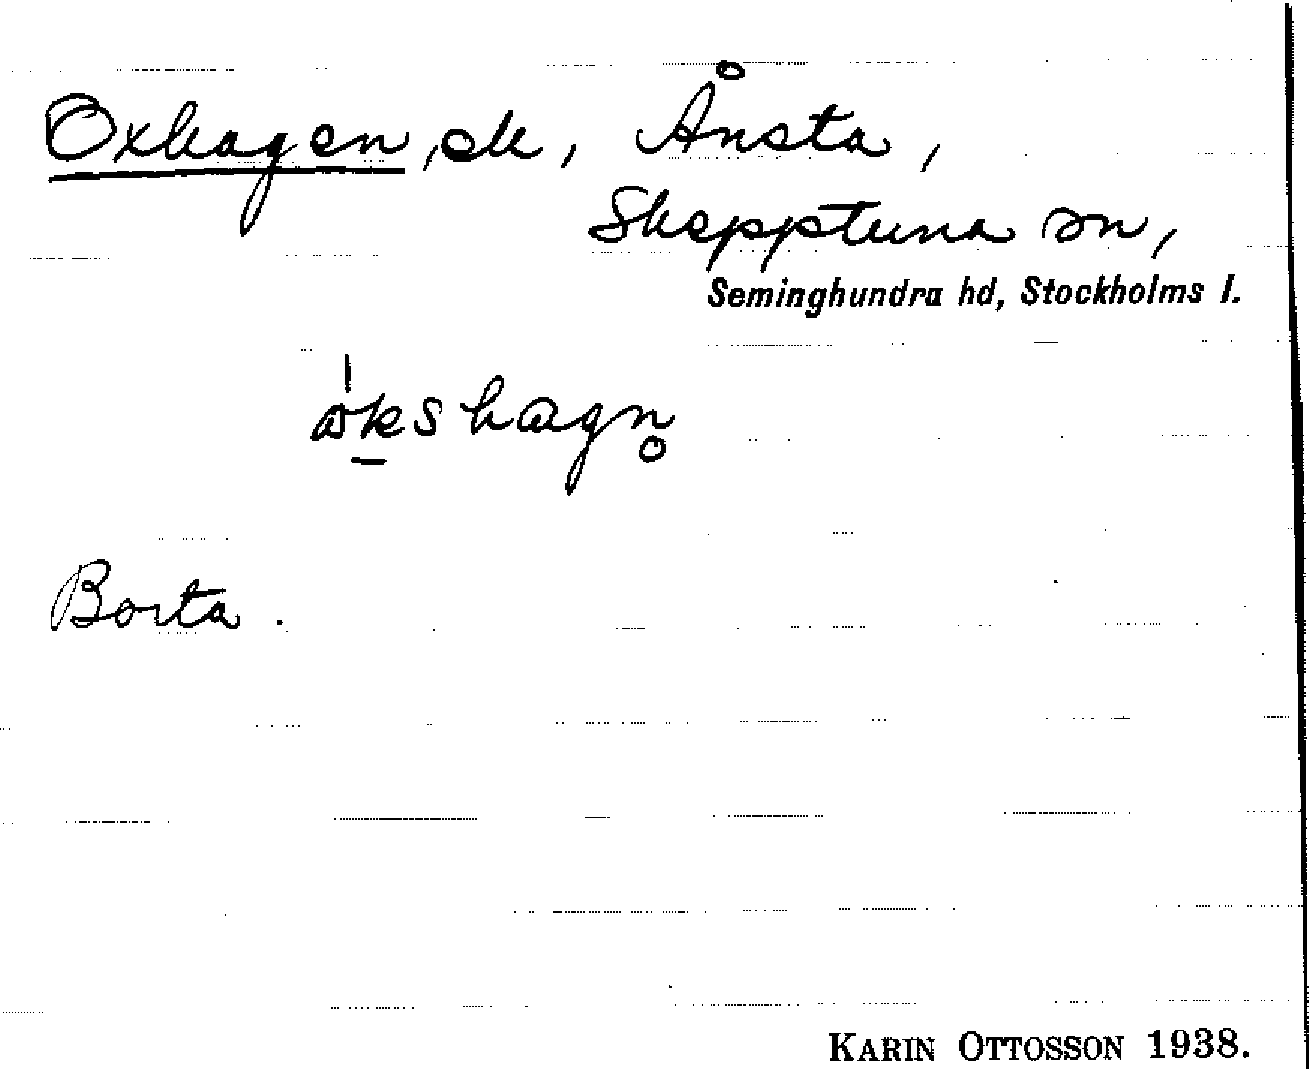 Oxhagen, sk, Ånsta,
Skepptuna sn,
Seminghundra hd, Stockholms l.
Borta.
KARIN OTTOSSON 1938.